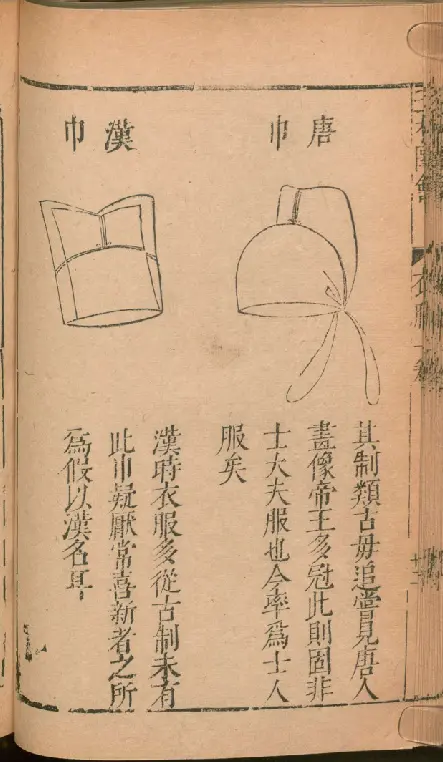 唐巾
其制類古毋追嘗見唐人
畫像帝王多冠此則固非
士大夫服也今率爲士人
服矣
漢巾
漢時衣服多從古制未有
此巾疑厭常喜新者之所
爲假以漢名耳